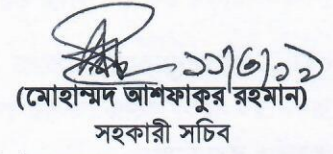 ১১/৩/১৯
(মোহাম্মদ আশফাকুর রহমান)
সহকারী সচিব